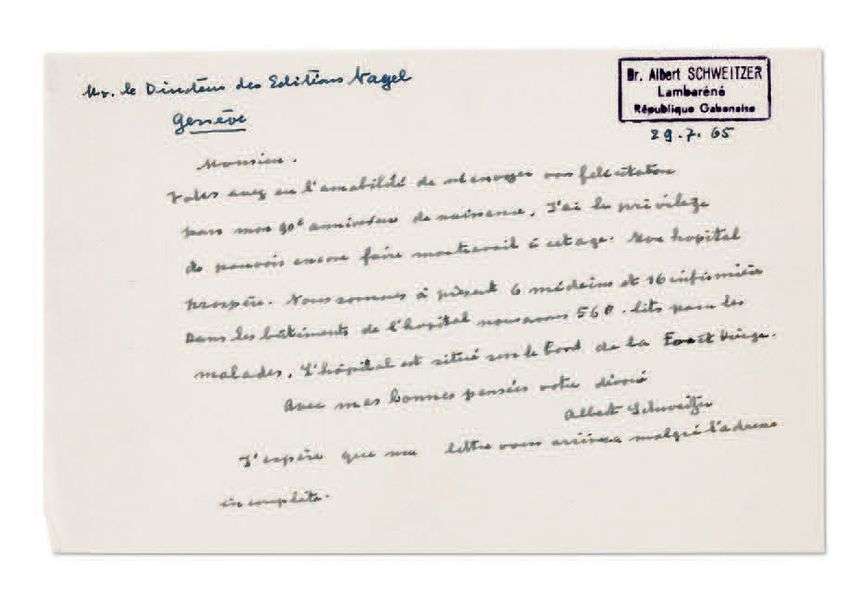 Mr. le Directeur des Editions Nagel
Genève
Dr. Albert SCHWEITZER
Lambaréné
République Gabonaise
29.7.65
Monsieur.
Vous avez eu l'amabilité de m'envoyer vos félicitation
pour mon 90e anniversaire de naissance. J'ai le privilège
de pouvoir encore faire mon travail à cet age. Mon hopital
prospère. Nous sommes à présent 6 médecins et 16 infirmières
Dans les bâtiments de l'hopital nous avons 560 lits pour les
malades. L'hôpital est situé sur le bord de la Foret Vierge.
Avec mes bonnes pensées votre dévoué
Albert Schweitzer
J'espère que ma lettre vous arrivera malgré l'adresse
incomplète.